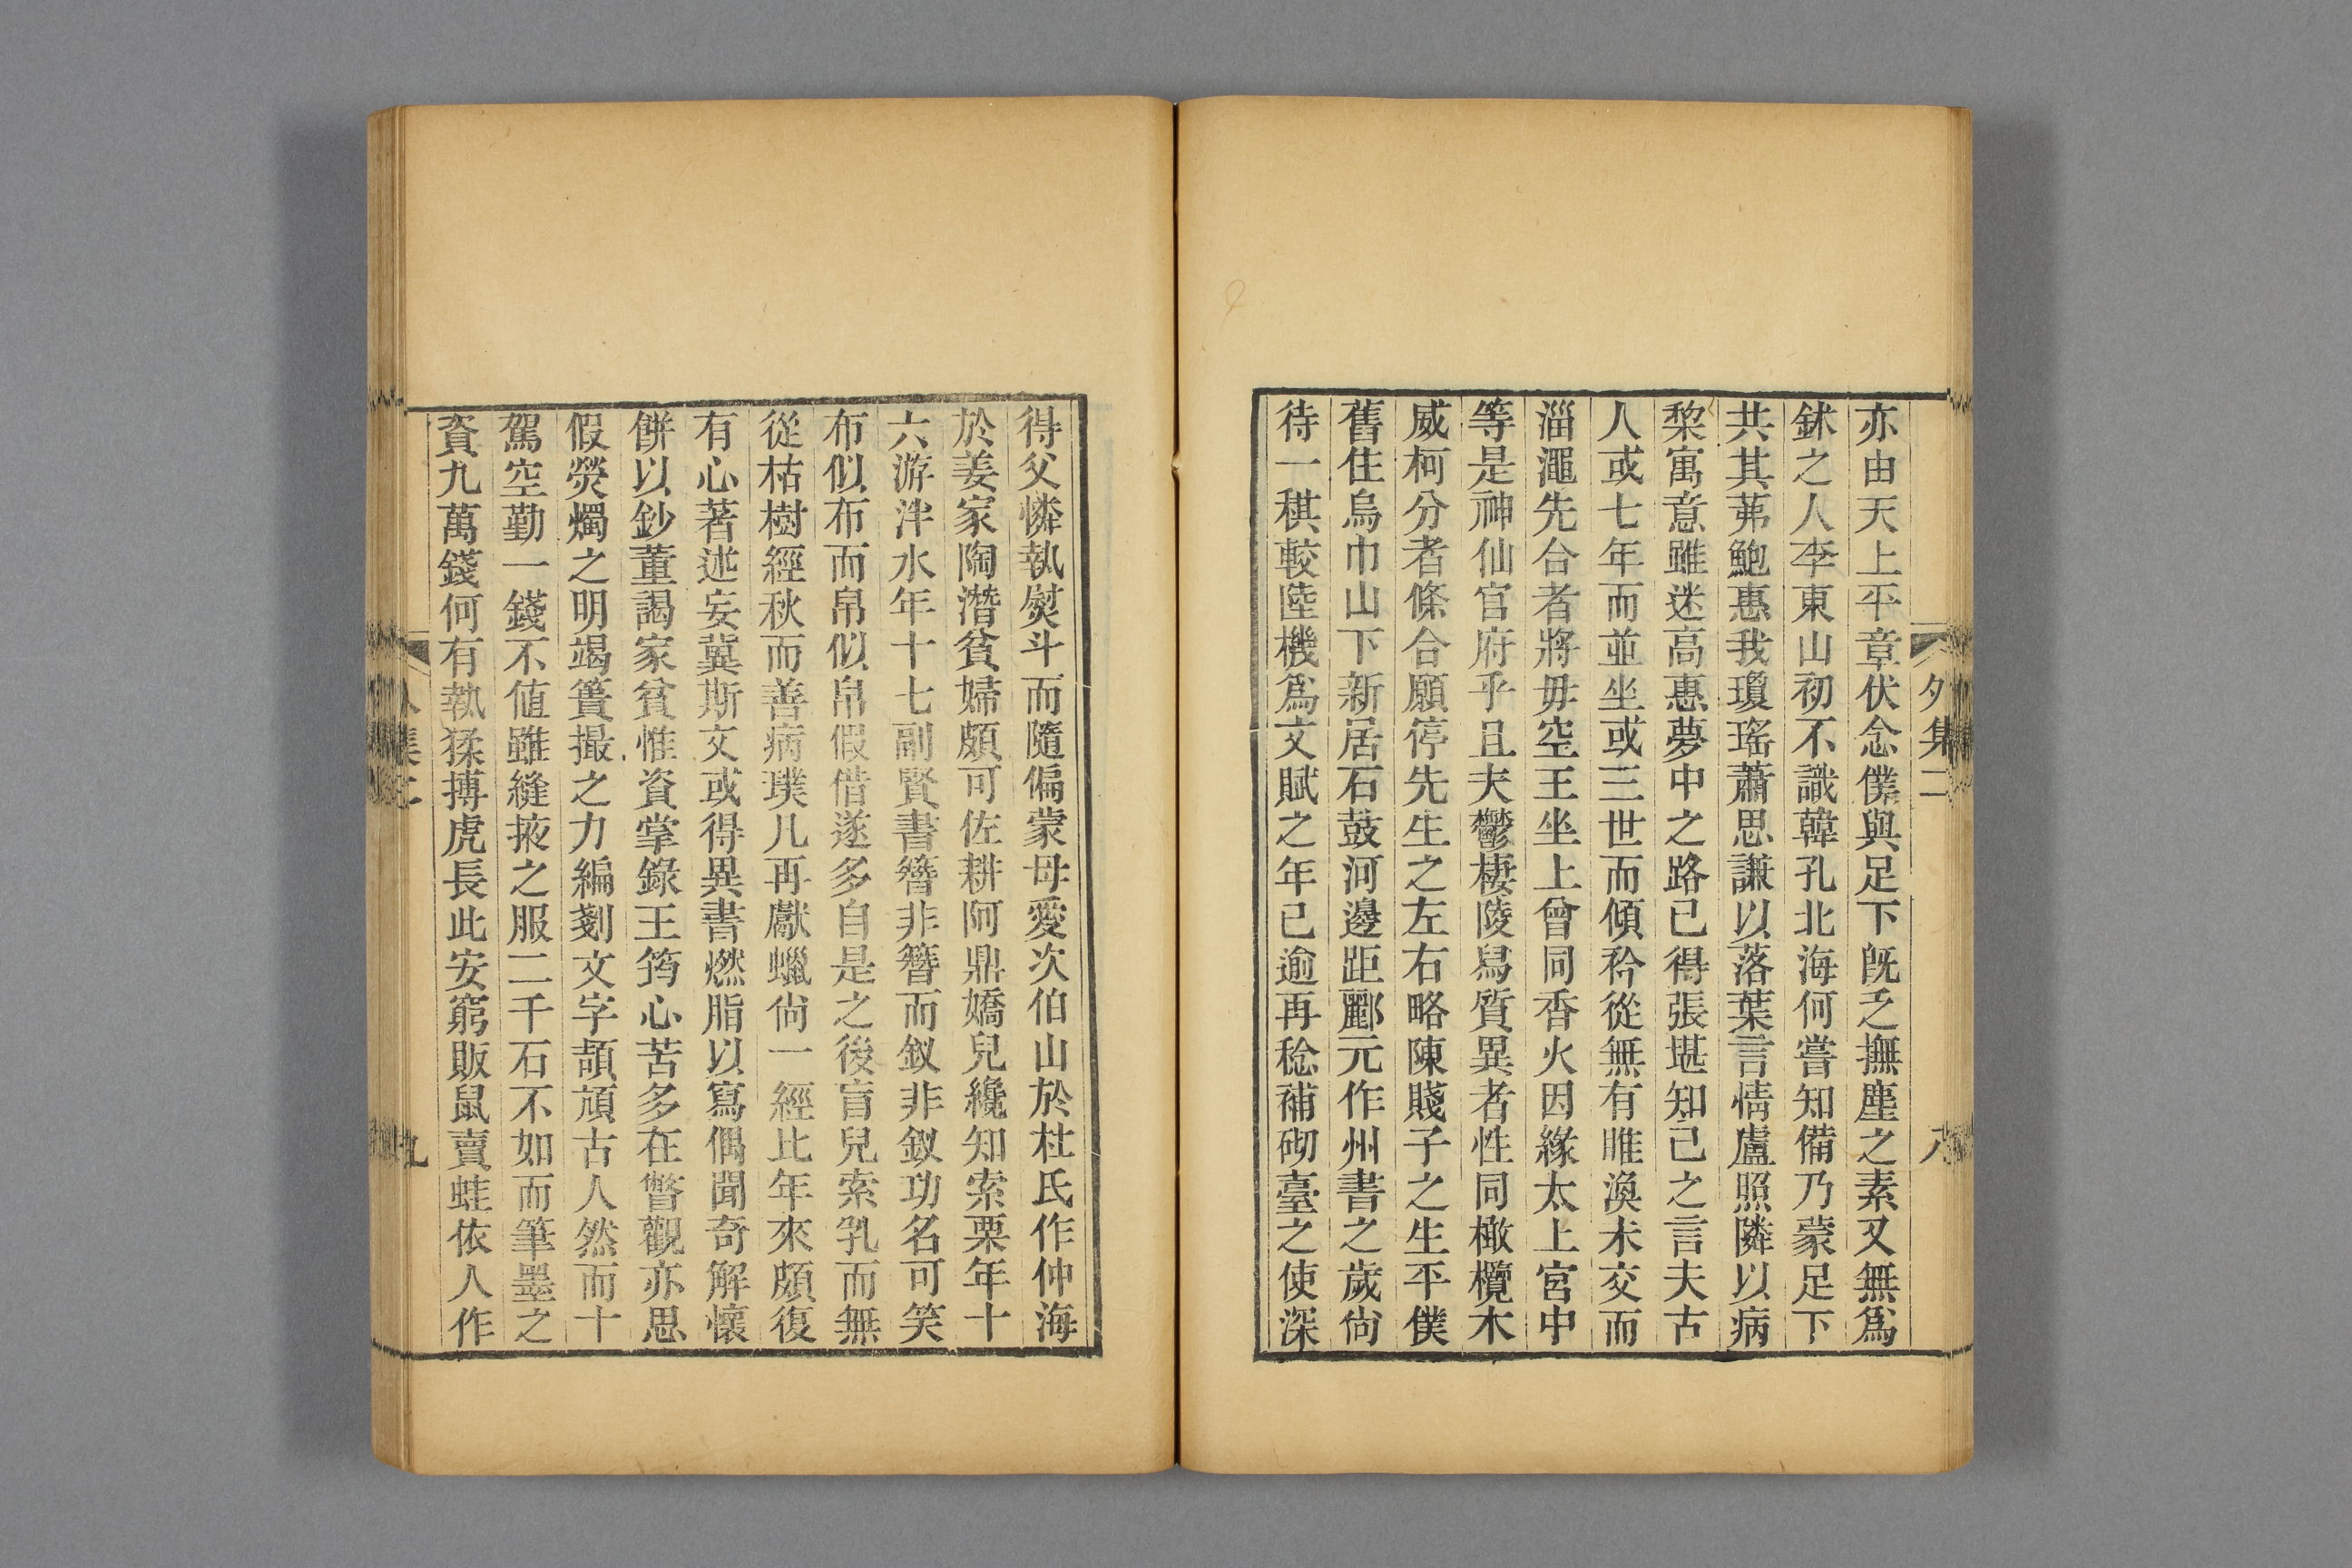 外集二
八
亦由天上平章伏念僕與足下旣乏撫塵之素又無爲
鉥之人李東山初不識韓孔北海何嘗知備乃蒙足下
共其茀鮑惠我瓊瑤蕭思謙以落葉言情盧照隣以病
棃寓意雖迷高惠夢中之路已得張堪知己之言夫古
人或七年而並坐或三世而傾矜從無有睢渙未交而
淄澠先合者將毋空王坐上曾同香火因緣太上宮中
等是神仙官府乎且夫鬱棲陵舄質異者性同橄欖木
威柯分者條合願停先生之左右略陳賤子之生平僕
舊住烏巾山下新居石鼓河邊距酈元作州書之歲尙
待一稘較陸機爲文賦之年已逾再稔補砌臺之使深
得父憐執熨斗而隨偏蒙母愛次伯山於杜氏作仲海
於姜家陶潛貧婦頗可佐耕阿鼎嬌兒纔知索栗年十
六游泮水年十七副賢書簪非簪而釵非釵功名可笑
布似布而帛似帛假借遂多自是之後盲兒索乳而無
從枯樹經秋而善病璞几再獻蠟尙一經比年來頗復
有心著述妄冀斯文或得異書燃脂以寫偶聞奇解懷
餅以鈔董謁家貧惟資掌錄王筠心苦多在瞥觀亦思
假熒燭之明竭簣撮之力編剗文字頡頏古人然而十
駕空勤一錢不値雖縫掖之服二千石不如而筆墨之
資九萬錢何有執猱搏虎長此安窮販鼠賣蛙依人作
集二
九